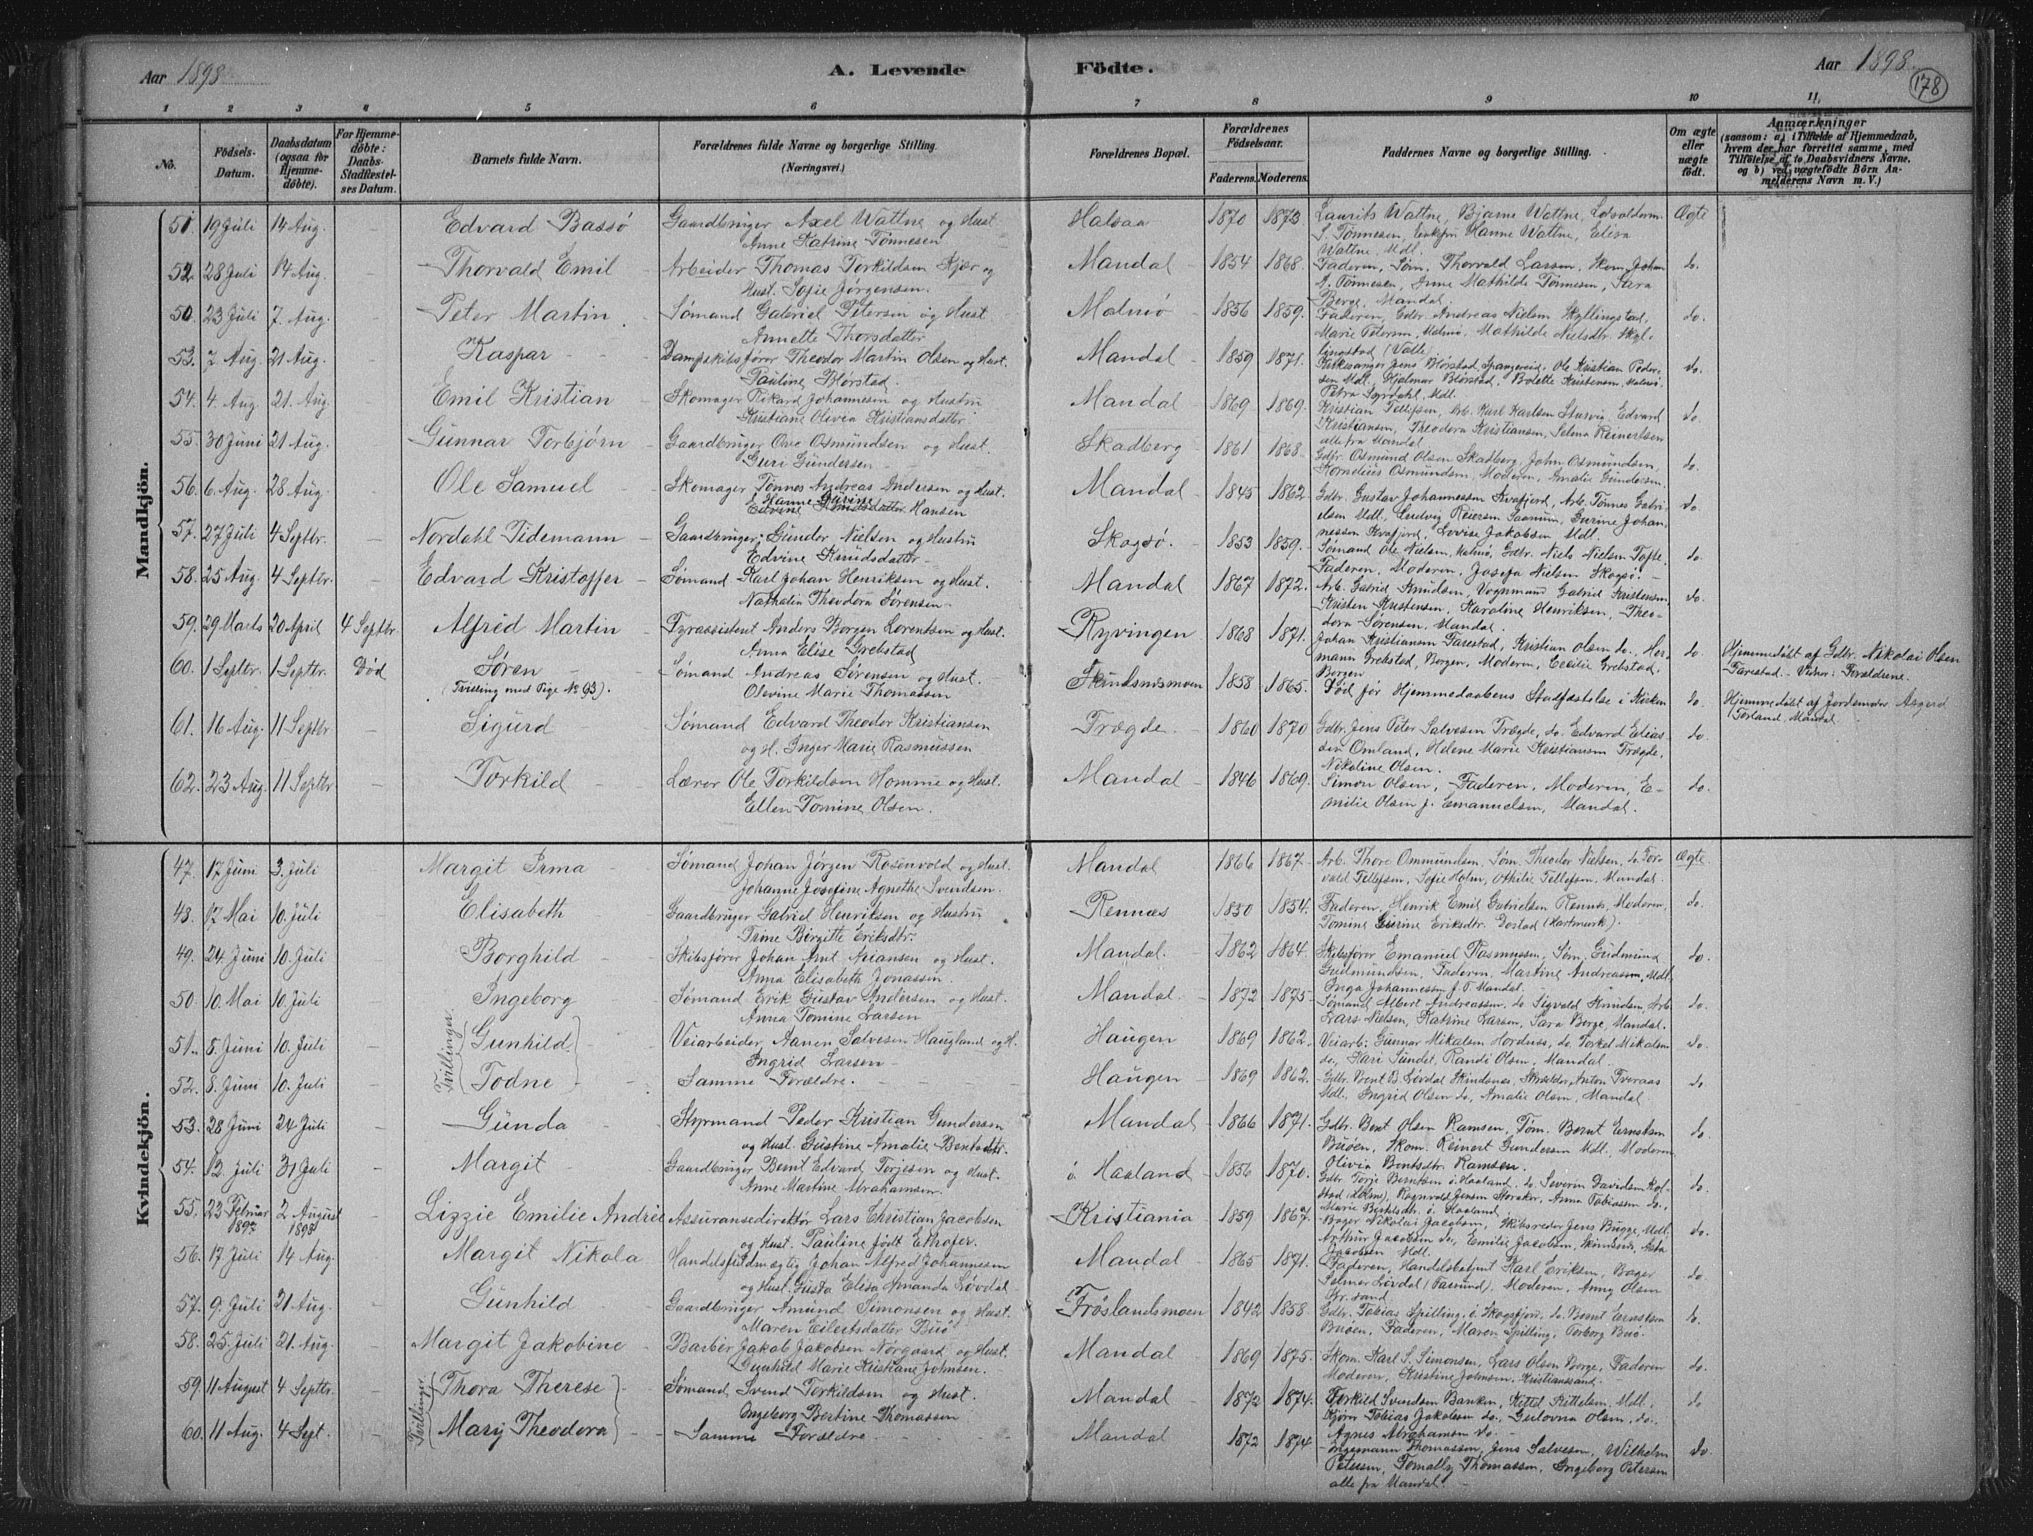 Aar 1898
A. Levende Födte.
Aar 1898
178
1 2 3 4 5 6 7 8 9 10 11
No.
Födsels-Datum.
Daabsdatum (ogsaa for Hjemme-döbte).
For Hjemme-døbte: Daabs-Stadfæstel-ses Datum.
Barnets fulde Navn.
Forældrenes fulde Navne og borgerlige Stilling. (Næringsvei.)
Forældrenes Bopæl.
Forældrenes Födselsaar.
Faderens. Moderens.
Faddernes Navne og borgerlige Stilling.
Om ægte eller uægte födt.
Anmærkninger
(saasom: a) i Tilfælde af Hjemmedaab, hvem der har forrettet samme, med Tilföielse af to Daabsvidners Navne, og b) ved uægtefödte Börn Anmelderens Navn m. V.)
Mandkjön.
51. 19 Juli 14 Aug. - Edvard Bassö Gaardbruger Axel Wattne og Hust. Anne Katrine Tönnesen Halsaa 1870 1873 Laurits Wattne, Bjarne Wattne, S. Tönnesen, Hanne Wattne, Elisa Wattne, Mdl. Ægte
52. 28 Juli 14 Aug. - Thorvald Emil Arbeider Thomas Torkildsen Kjær og Hust. Sofie Jörgensen. Mandal 1854 1868. Faderen, Söm. Thorvald Larsen, Skom. Johan A. Tönnesen, Anne Mathilde Tönnesen, Sara Berge, Mandal. do.
50. 23 Juli 7. Aug. - Peter Martin Sømand Gabriel Petersen og Hust. Annette Thorsdatter Malmö 1856 1859. Faderen, Gdbr. Andreas Nielsen Skyllingstad, Marie Petersen, Malmö, Mathilde Nielsdtr. Skyllingstad (Valle) do.
53. 2 Aug. 21 Aug. - Kaspar Dampskibsfører Theodor Martin Olsen og Hust. Pauline Blørstad. Mandal 1859 1871. Kirkesanger Jens Blørstad Spangereid, Ole Kristian Pedersen Mdl. Hjalmar Blørstad, Bolette Kristensen, Malmö, Petra Syrdahl, Mdl. do.
54. 4. Aug. 21. Aug. - Emil Kristian Skomager Rikard Johannesen og Hustru Kristiane Olivia Kristiansdatter. Mandal 1869 1869. Kristian Tellefsen, Arb. Karl Karlsen Sturvig, Edvard Kristiansen, Theodora Kristiansen, Selma Reinertsen alle fra Mandal. do.
55. 30 Juni 21 Aug. - Gunnar Torbjörn Gaardbruger Ove Osmundsen og Hust. Guri Gundersen Skadberg 1861 1868. Gdbr. Osmund Olsen Skadberg, John Osmundsen, Kornelius Osmundsen, Moderen, Amalie Gundersen. do.
56. 6. Aug. 28 Aug. - Ole Samuel Skomager Tönnes Andreas Andersen og Hust. Hanne Gurine Hansen Mandal 1845 1862 Gdbr. Gustav Johannessen Kvafjord, Arb. Tönnes Gabrielsen Mdl. Ludvig Reiersen Saanum, Gurine Johannessen Kvafjord, Lovise Jakobsen Mdl. do.
57. 27 Juli 4 Septbr. - Nordahl Tidemann Gaardbruger Gunder Nielsen og Hustru Edvine Knudsdatter Skogsö. 1853 1859. Sømand Ole Nielsen, Malmö, Gdbr. Niels Nielsen Tofte, Faderen, Moderen, Josefa Nielsen Skogsö. do.
58. 25 Aug. 4 Septbr. - Edvard Kristoffer Sømand Karl Johan Henriksen og Hust. Nathalia Theodora Sørensen Mandal 1867 1872. Arb. Gabriel Knudsen, Vognmand Gabriel Kristensen, Kristen Kristensen, Karoline Henriksen, Theodora Sørensen, Mandal. do.
59. 29 Marts 20 April 4 Septbr. Alfred Martin Fyrassistent Anders Borgen Lorentsen og Hust. Anna Elise Grebstad Ryvingen 1868 1871. Johan Kristiansen Farestad, Kristian Olsen do. Hermann Grebstad, Borgen, Moderen, Cecilie Grebstad Borgen do. Hjemmedöbt af Gdbr. Nikolai Olsen Farestad. - Vidner: Forældrene.
60. 1 Septbr. 1 Septbr. Død Søren (Tvilling med Pige No 63). Sømand Andreas Sørensen og Hust. Olevine Marie Thomassen Skindsnismoen 1858 1865. Død før Hjemmedaabens Stadfæstelse i Kirken do. Hjemmedöbt af Jordemoder Asgerd Torland, Mandal
61. 16 Aug. 11 Septbr. - Sigurd Sømand Edvard Theodor Kristiansen og H. Inger Marie Rasmussen Trægde 1860 1870 Gdbr. Jens Peter Salvesen Trægde, do. Edvard Eliassen Omland, Helene Marie Kristiansen Trægde, Nikoline Olsen. do.
62. 23 Aug. 11 Septbr. - Torkild Lærer Ole Torkildsen Homme og Hust. Ellen Tomine Olsen. Mandal 1846 1869. Simon Olsen, Faderen, Moderen, Emilie Olsen f. Emanuelsen, Mandal. do.
Kvindekjön.
47. 17 Juni 3. Juli - Margit Irma Sømand Johan Jørgen Rosenvold og Hust. Johanne Josefine Agnethe Svendsen. Mandal 1866 1867. Arb. Thore Ommundsen, Söm. Theodor Nielsen, do Torvald Tellefsen, Sofie Holm, Othilie Tellefsen, Mandal. Ægte
48. 17 Mai 10. Juli - Elisabeth Gaardbruger Gabriel Henriksen og Hustru Trine Birgitte Eriksdtr. Rennæs 1850 1854. Faderen, Henrik Emil Gabrielsen Rennæs, Moderen, Tomine Gurine Eriksdtr. Dostad (Hartmark). do.
49. 24 Juni 10. Juli - Borghild Skibsfører Johan Arnt Ariansen og Hust. Anna Elisabeth Jonassen Mandal. 1862 1864. Skibsfører Emanuel Rasmussen, Söm. Gudmund Gudmundsen, Faderen, Martine Andreassen, Mdl. Inga Johannessen, Mandal. do.
50. 10. Mai 10. Juli - Ingeborg Sømand Erik Gustav Andersen og Hust. Anna Tomine Larsen Mandal. 1872 1875. Sømand Albert Andreassen, do Sigvald Knudsen, Arb. Lars Nielsen, Katrine Larsen, Sara Berge, Mandal. do.
51. 8. Juni 10. Juli - Tvillinger Gunhild Veiarbeider Aanen Salvesen Haugland og H. Ingrid Larsen Haugen 1869 1862. Veiarb. Gunnar Mikalsen Hordnæs, do Torkel Mikalsen do., Kari Sundet, Randi Olsen, Mandal. do.
52. 8. Juni 10. Juli - Todne Samme Forældre. Haugen 1869 1862. Gdbr. Bent B. Løvdal Skindsnæs, Anton Tveraas Mdl. Ingrid Olsen do, Amalie Olsen, Mandal. do.
53. 28 Juni 24 Juli - Gunda Styrmand Peder Kristian Gundersen og Hust. Gustine Amalie Bentsdtr. Mandal 1866 1871. Gdbr. Bent Olsen Ramsen, Töm. Bernt Ernstsen Buöen, Skom. Reinert Gundersen Mdl. Moderen, Olivia Bentsdtr. Ramsen. do.
54. 12 Juli 31 Juli - Margit Gaardbruger Bernt Edvard Torjesen og Hust. Anne Martine Abrahamsen. ö. Haaland 1856 1870. Gdbr. Torje Berntsen ö. Haaland, do. Severin Davidsen Kolstad (Holme), Ragnvald Jensen Storaker, Anna Tobiassen do., Marie Berntsdtr. ö. Haaland. do.
55. 23 Februar 1897 2 August 1898 - Lizzie Emilie Andrée Assuransedirektør Lars Christian Jacobsen og Hust. Pauline født Ethofer. Kristiania 1859 1867. Bager Nikolai Jacobsen, Skibsreder Jens Bugge, Mdl. Arthur Jacobsen do, Emilie Jacobsen, Asta Jacobsen Mdl. do.
56. 17 Juli 14 Aug. Margit Nikola Handelsfuldmægtig Johan Alfred Johannesen og Hust. Gusta Elisa Amanda Løvdal Mandal 1865 1871. Faderen, Handelsbetjent Karl Eriksen, Bager Selmer Løvdal (Farsund), Moderen, Anny Olsen Kr.sand. do
57. 9. Juli 21 Aug. - Gunhild Gaardbruger Amund Simonsen og Hust. Maren Eilertsdatter Buö Frøslandsmoen 1842 1858. Gdbr. Tobias Spilling, ö. Skogsfjord, do. Bernt Ernstsen Buöen, Faderen, Maren Spilling, Torborg Buö. do.
58. 25. Juli 21. Aug. - Margit Jakobine Barbér Jakob Jakobsen Nørgaard og Hust. Gunhild Marie Kristiane Johnsen. Mandal 1869 1875. Skom. Karl S. Simonsen, Lars Olsen Borge, Faderen Moderen, Kristine Johnsen, Kristianssand. do.
59. 11 August 4 Septbr. Tvillinger Thora Therese Sømand Svend Torkildsen og Hust. Ingeborg Bertine Thomassen Mandal 1872 1874. Torkild Svendsen Banken, Kittel Kittelsen, Mdl., Björn Tobias Jakobsen do., Gulovna Olsen, do. Agnes Abrahamsen do. do
60. 11 Aug. 4 Sept. Mary Theodora Samme Forældre Mandal 1872 1874 Ingemann Thomassen, Jens Salvesen, Wilhelm Petersen, Tomally Thomassen, Ingeborg Petersen alle fra Mandal. do.